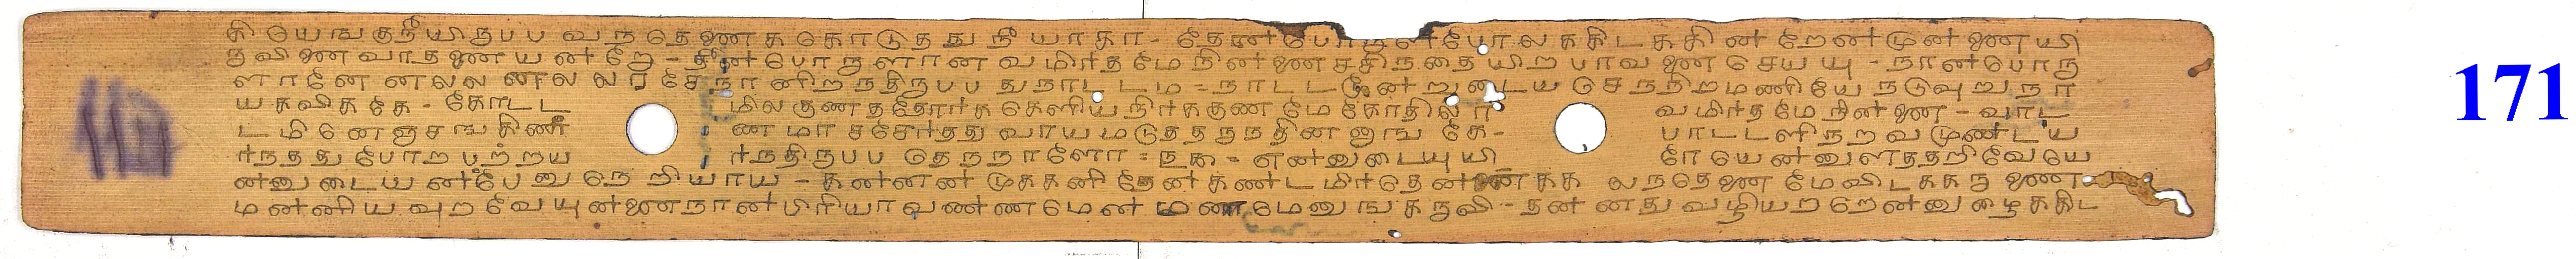 கியெஙகுநீயிருபப வநதெணை க கொடுதது நீ யாகா - தேன பொருளபோல ககிடககின றேனமுன ணையி
ருவிணை வாதணை யன றே - தினபொருளான வமிரதமே நினணை சசிநதையிற பாவணை செயயு - நானபொரு
ளானேனலல னலலா சேநா னிறநதிருபப துநாடடம - நாடடமூனறுடைய செநநிறமணியே நடுவுறுநா
யகவிககே - கோடட மிலகுணததோரக கெளிய நிரககுணமே கோதிலா வமிரதமே நினணை - வாட
டமினெஞசஙகிணண ணமா சசேரதது வாயமடுததருநதினனுங கே - பாடடளிநறவமுணடய
ரநதது போறபறறய ரநதிருபப தெநநாளோ = ௩௬ = எனனுடையுயி ரேயெனனுளததறிவேயே
னனுடையனபேனுநெறியாய - கனனன முககனி தேன கணட மிரதென னக க லநதெணை மேவிடககருணை
மனனியவுறவேயுனணைநானபிரியா வணணமென மணமேனுஙகருவி - தனனது வழியறறெனனுழைககிட
171